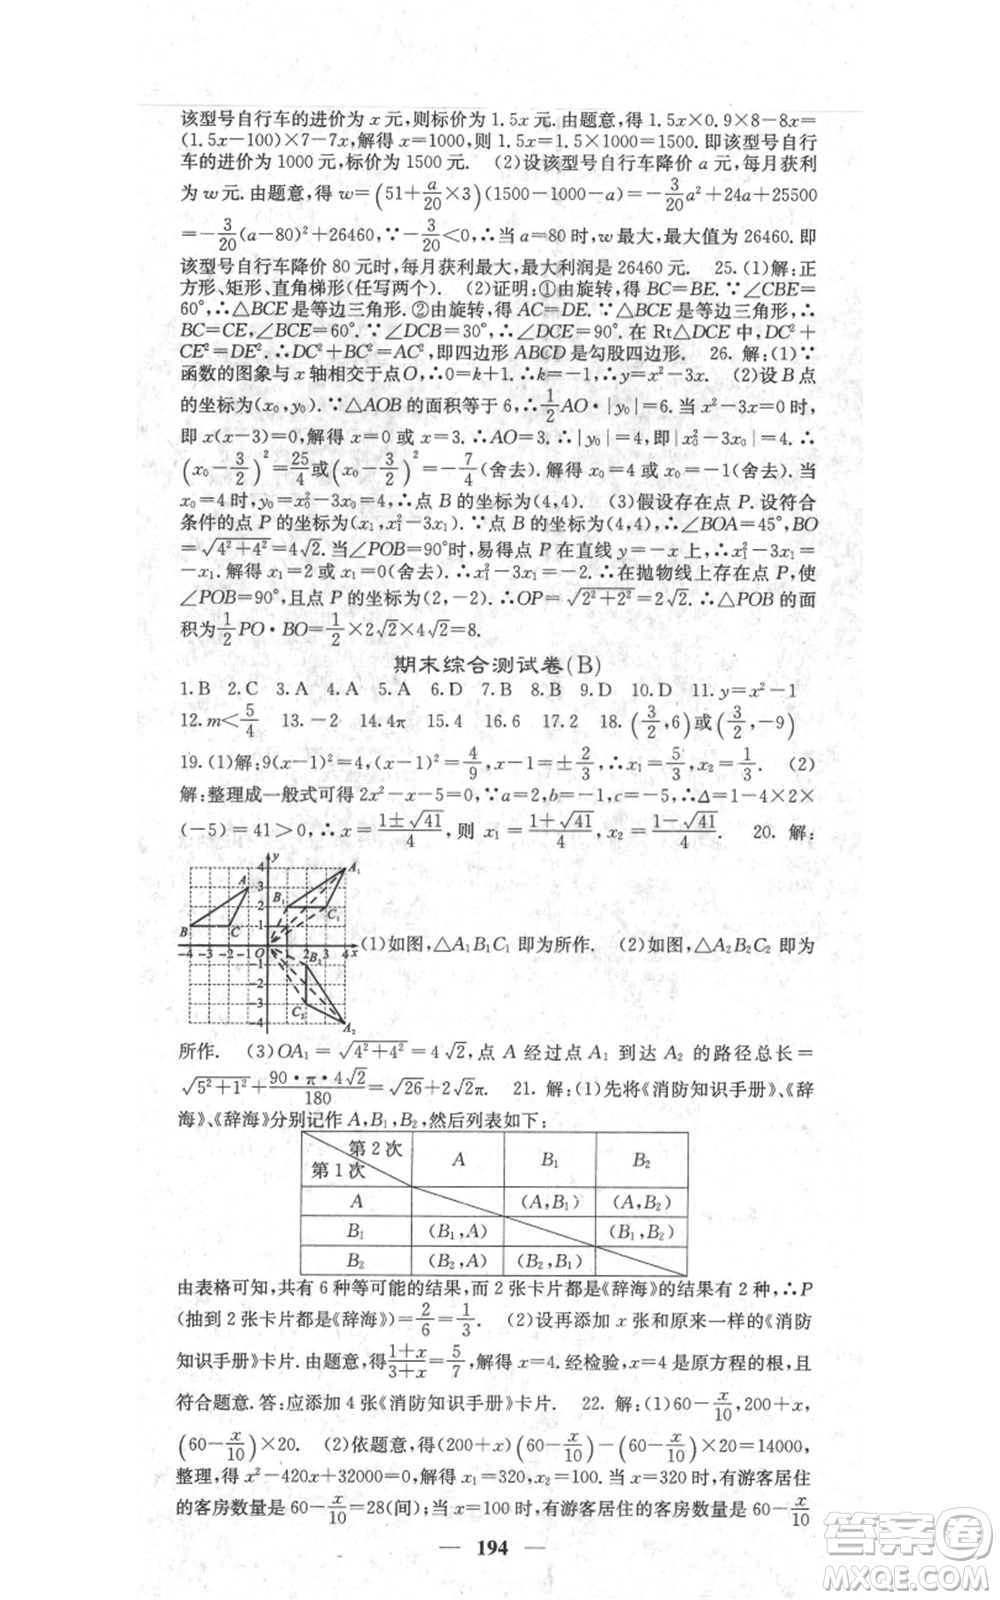 该型号自行车的进价为 x 元,则标价为 1.5x 元.由题意,得 1.5x×0.9×8－8x＝
(1.5x－100)×7－7x,解得 x＝1000,则 1.5x＝1.5×1000＝1500.即该型号自行
车的进价为 1000 元,标价为 1500 元. (2)设该型号自行车降价 a 元,每月获利
为 w 元.由题意,得 w＝(51＋a/20×3)(1500－1000－a)＝－3/20a²＋24a＋25500
＝－3/20(a－80)²＋26460,∵－3/20＜0,∴当 a＝80 时,w 最大,最大值为 26460.即
该型号自行车降价 80 元时,每月获利最大,最大利润是 26460 元. 25.(1)解:正
方形、矩形、直角梯形(任写两个). (2)证明:①由旋转,得 BC＝BE.∵∠CBE＝
60°,∴△BCE 是等边三角形.②由旋转,得 AC＝DE.∵△BCE 是等边三角形,∴
BC＝CE,∠BCE＝60°.∵∠DCB＝30°,∴∠DCE＝90°.在 Rt△DCE 中,DC²＋
CE²＝DE²,∴DC²＋BC²＝AC²,即四边形 ABCD 是勾股四边形. 26. 解:(1)∵
函数的图象与 x 轴相交于点O,∴0＝k＋1,∴k＝－1,∴y＝x²－3x. (2)设 B 点
的坐标为(x₀,y₀).∵△AOB 的面积等于 6,∴1/2AO·|y₀|＝6.当 x²－3x＝0 时,
即 x(x－3)＝0,解得 x＝0 或 x＝3.∴AO＝3.∴|y₀|＝4,即|x₀²－3x₀|＝4.∴
(x₀－3/2)²＝25/4或(x₀－3/2)²＝－7/4(舍去).解得 x₀＝4 或 x₀＝－1(舍去).当
x₀＝4 时,y₀＝x₀²－3x₀＝4,∴点 B 的坐标为(4,4). (3)假设存在点 P.设符合
条件的点 P 的坐标为(x₁,x₁²－3x₁).∵点 B 的坐标为(4,4),∴∠BOA＝45°,BO
＝√(4²＋4²)＝4√2.当∠POB＝90°时,易得点 P 在直线 y＝－x 上,∴x₁²－3x₁＝
－x₁.解得 x₁＝2 或 x₁＝0(舍去).∴x₁²－3x₁＝－2.∴在抛物线上存在点 P,使
∠POB＝90°,且点 P 的坐标为(2,－2).∴OP＝√(2²＋2²)＝2√2.∴△POB 的面
积为1/2PO·BO＝1/2×2√2×4√2＝8.
期末综合测试卷(B)
1.B 2.C 3.A 4.A 5.A 6.D 7.D 8.B 9.D 10.D 11.y＝x²－1
12.m＜5/4 13.－2 14.4π 15.4 16.6 17.2 18.(3/2,6)或(3/2,－9)
19.(1)解:9(x－1)²＝4,(x－1)²＝4/9,x－1＝±2/3,∴x₁＝5/3,x₂＝1/3. (2)
解:整理成一般式可得 2x²－x－5＝0,∵a＝2,b＝－1,c＝－5,∴Δ＝1－4×2×
(－5)＝41＞0,∴x＝(1±√41)/4,则 x₁＝(1＋√41)/4,x₂＝(1－√41)/4. 20. 解:
y 4 3 2 1 A B C A₁ B₁ C₁
－4 －3 －2 －1 O 2 3 4 x B₂
－1 －2 －3 －4 C₂ A₂
(1)如图,△A₁B₁C₁ 即为所作. (2)如图,△A₂B₂C₂ 即为
所作. (3)OA₁＝√(4²＋4²)＝4√2,点 A 经过点 A₁ 到达 A₂ 的路径总长＝
√(5²＋1²)＋90·π·4√2/180＝√26＋2√2π. 21. 解:(1)先将《消防知识手册》、《辞
海》、《辞海》分别记作 A,B₁,B₂,然后列表如下:
第 2 次 第 1 次 A B₁ B₂
A (A,B₁) (A,B₂)
B₁ (B₁,A) (B₁,B₂)
B₂ (B₂,A) (B₂,B₁)
由表格可知,共有 6 种等可能的结果,而 2 张卡片都是《辞海》的结果有 2 种,∴P
(抽到 2 张卡片都是《辞海》)＝2/6＝1/3. (2)设再添加 x 张和原来一样的《消防
知识手册》卡片.由题意,得(1＋x)/(3＋x)＝5/7,解得 x＝4.经检验,x＝4 是原方程的根,且
符合题意.答:应添加 4 张《消防知识手册》卡片. 22. 解:(1)60－x/10,200＋x,
(60－x/10)×20. (2)依题意,得(200＋x)(60－x/10)－(60－x/10)×20＝14000,
整理,得 x²－420x＋32000＝0,解得 x₁＝320,x₂＝100.当 x＝320 时,有游客居住
的客房数量是 60－x/10＝28(间);当 x＝100 时,有游客居住的客房数量是 60－x/10
— 194 —
答案圈
MXQE.COM